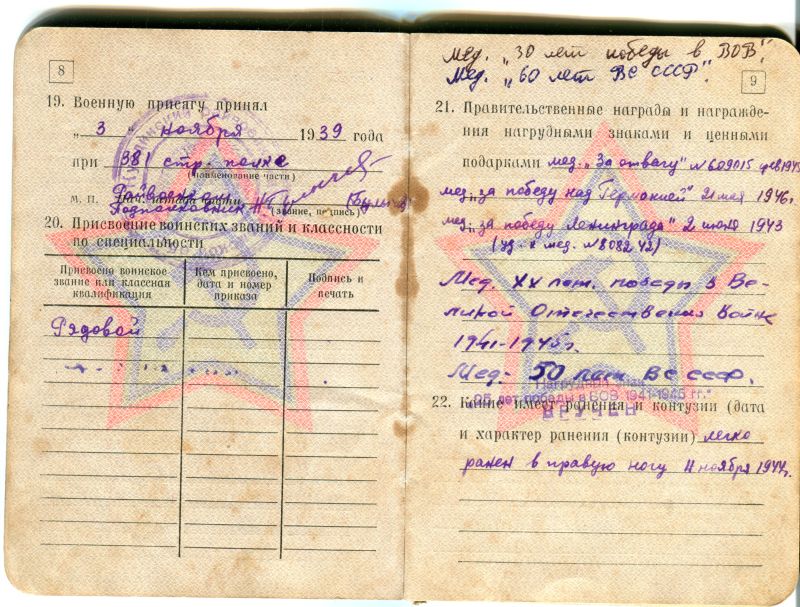 8
19. Военную присягу принял
„3“ ноября 1939 года
при 381 стр. полке
(наименование части)
М. П. Нач. штаба части
Райвоенком
Подполковник
(звание, подпись)
20. Присвоение воинских званий и классности
по специальности
Присвоено воинское звание или классная квалификация
Кем присвоено, дата и номер приказа
Подпись и печать
Рядовой
Мед. „30 лет победы в ВОВ“.
Мед. „60 лет ВС СССР“.
9
21. Правительственные награды и награжде-
ния нагрудными знаками и ценными
подарками мед. „За отвагу“ № 609015
мед. „за победу над Германией“ 21 мая 1946г.
мед. „за победу Ленинграда“ 2 июня 1943
(уд. к мед. № 808242)
Мед. XX лет. победы в Ве-
ликой Отечественной Войне
1941-1945г.
Мед. 50 лет ВС СССР.
Нагрудный знак
"25 лет победы в ВОВ 1941-1945 гг."
ВРУЧЕН
22. Какие имеет ранения и контузии (дата
и характер ранения (контузии) легко
ранен в правую ногу 11 ноября 1944г.